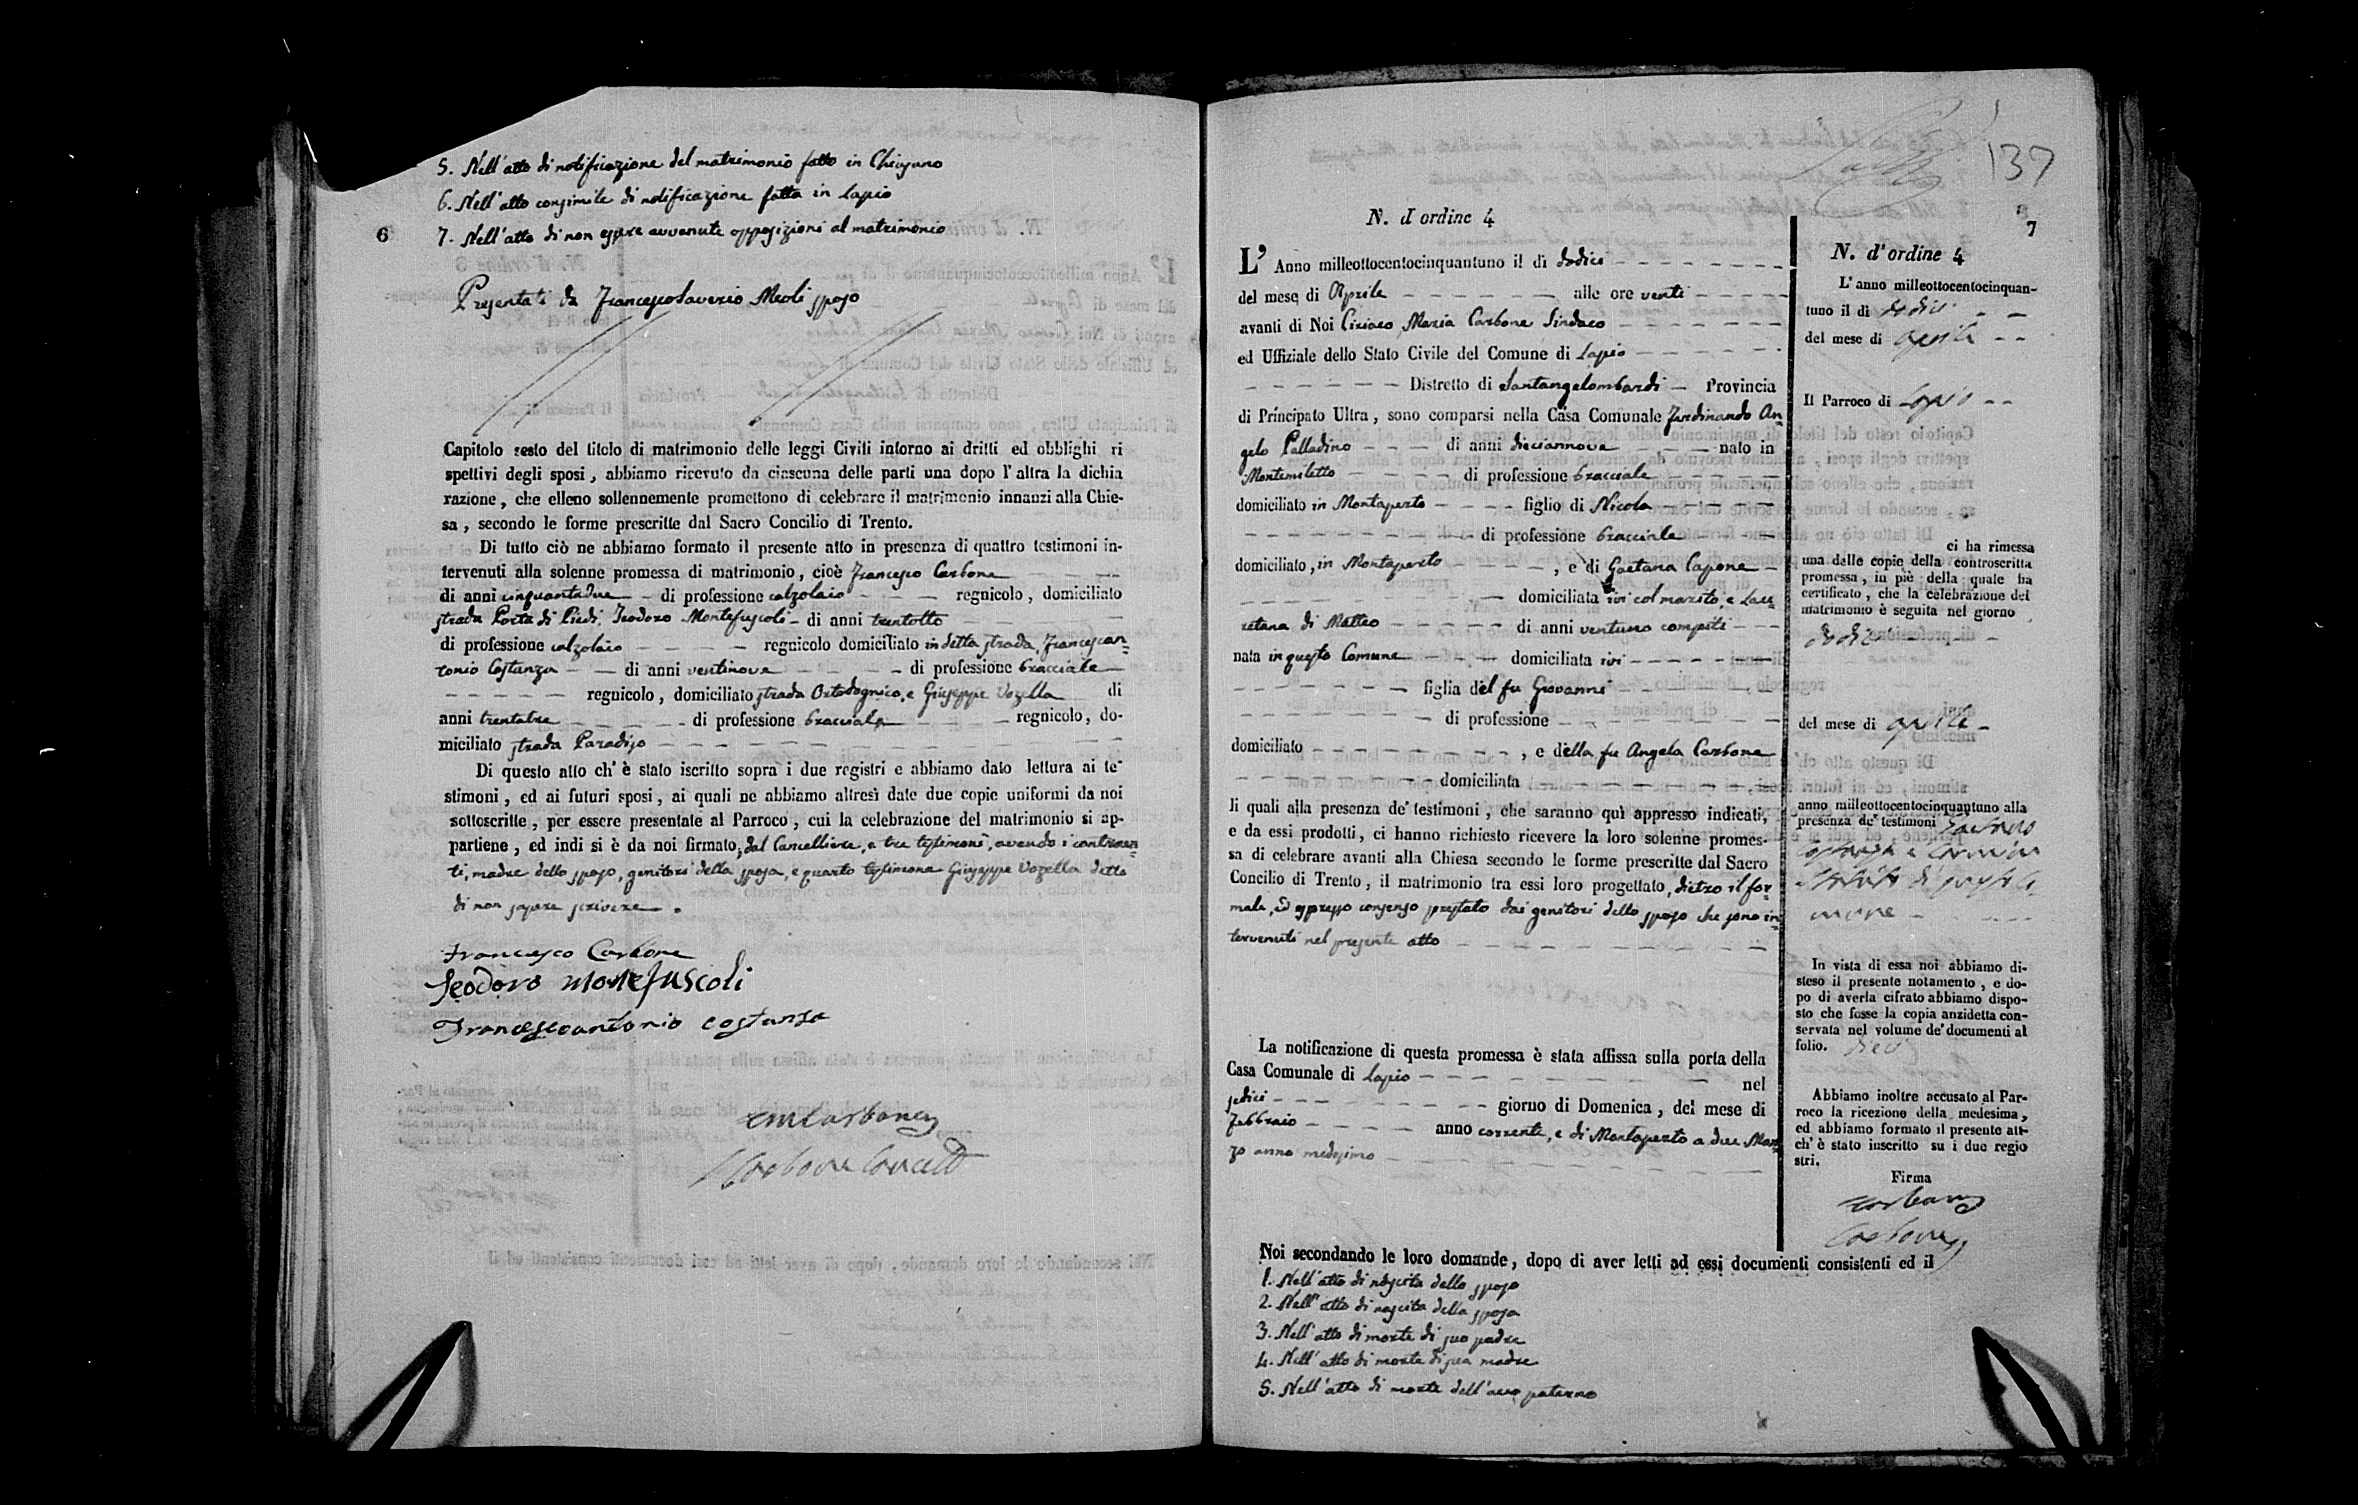 5. Nell'atto di notificazione del matrimonio fatto in Chiusano
6. Nell'atto consimile di notificazione fatta in Lapio
6
7. Nell'atto di non essere avvenute opposizioni al matrimonio
Presentati da Francescosaverio Meoli sposo
Capitolo sesto del titolo di matrimonio delle leggi Civili intorno ai dritti ed obblighi ri
spettivi degli sposi, abbiamo ricevuto da ciascuna delle parti una dopo l'altra la dichia
razione, che elleno sollennemente promettono di celebrare il matrimonio innanzi alla Chie-
sa, secondo le forme prescritte dal Sacro Concilio di Trento.
Di tutto ciò ne abbiamo formato il presente atto in presenza di quattro testimoni in-
tervenuti alla solenne promessa di matrimonio, cioè Francesco Carbone
di anni cinquantadue - di professione calzolaio - - regnicolo, domiciliato
strada Porta di Piedi, Teodoro Montefuscoli - di anni trentotto
di professione calzolaio - - - - regnicolo domiciliato in detta strada, Francescan=
tonio Costanza - - di anni ventinove - - - - di professione bracciale
- - - - - regnicolo, domiciliato strada Ortodognico, e Giuseppe Vozella di
anni trentatre - - - - - di professione bracciale - - - - regnicolo, do-
miciliato strada Paradiso - - - - - - - -
Di questo atto ch'è stato iscritto sopra i due registri e abbiamo dato lettura ai te-
stimoni, ed ai futuri sposi, ai quali ne abbiamo altresì date due copie uniformi da noi
sottoscritte, per essere presentate al Parroco, cui la celebrazione del matrimonio si ap-
partiene, ed indi si è da noi firmato, dal Cancelliere, e tre testimoni, avendo i contraen=
ti, madre dello sposo, genitori della sposa, e quarto testimone Giuseppe Vozella detto
di non sapere scrivere.
Francesco Carbone
Teodoro Montefuscoli
Francescoantonio Costanza
CMCarbone
Carbone Cancell
137
7
N. d'ordine 4
L'Anno milleottocentocinquantuno il dì dodici - - - - - - - -
del mese di Aprile - - - - - - alle ore venti - - - - -
avanti di Noi Ciriaco Maria Carbone Sindaco - - - - - - -
ed Uffiziale dello Stato Civile del Comune di Lapio - - - - -
- - - - - - Distretto di Santangelombardi - Provincia
di Principato Ultra, sono comparsi nella Casa Comunale Ferdinando An=
gelo Palladino - - - di anni dieciannove - - - - nato in
Montemiletto - - - - - di professione bracciale - - - - -
domiciliato in Montaperto - - - - figlio di Nicola - - - - -
- - - - - - - - - di professione bracciale - -
domiciliato, in Montaperto - - - - -, e di Gaetana Capone -
- - - - - - - - - domiciliata ivi col marito, e Lau=
retana di Matteo - - - - - di anni ventuno compiti - - -
nata in questo Comune - - - domiciliata ivi - - - - - -
- - - - - - - figlia del fu Giovanni - - - -
- - - - - - - - di professione - - - - - - - -
domiciliato - - - - - - - -, e della fu Angela Carbone
- - - - - - - - domiciliata - - - - - - - -
li quali alla presenza de' testimoni, che saranno quì appresso indicati,
e da essi prodotti, ci hanno richiesto ricevere la loro solenne promes-
sa di celebrare avanti alla Chiesa secondo le forme prescritte dal Sacro
Concilio di Trento, il matrimonio tra essi loro progettato, dietro il for=
male, ed espresso consenso prestato dai genitori dello sposo che sono in
tervenuti nel presente atto - - - - - - - - -
La notificazione di questa promessa è stata affissa sulla porta della
Casa Comunale di Lapio - - - - - - - - nel
sedici - - - - - - - - giorno di Domenica, del mese di
Febbraio - - - - - anno corrente, e di Montaperto a due Mar=
zo anno medesimo - - - - - - - - - -
Noi secondando le loro domande, dopo di aver letti ad essi documenti consistenti ed il
1. Nell'atto di nascita dello sposo
2. Nell'atto di nascita della sposa
3. Nell'atto di morte di suo padre
4. Nell'atto di morte di sua madre
5. Nell'atto di morte dell'avo paterno
N. d'ordine 4
L'anno milleottocentocinquan-
tuno il dì dodici - -
del mese di aprile - -
Il Parroco di Lapio - -
ci ha rimessa
una delle copie della controscritta
promessa, in piè della quale ha
certificato, che la celebrazione del
matrimonio è seguita nel giorno
dodici
del mese di aprile -
anno milleottocentocinquantuno alla
presenza de' testimoni Gaetano
Costanza e Carmine
di questo Co
mune - - - -
In vista di essa noi abbiamo di-
steso il presente notamento, e do-
po di averla cifrato abbiamo dispo-
sto che fosse la copia anzidetta con-
servata nel volume de' documenti al
folio. dieci
Abbiamo inoltre accusato al Par-
roco la ricezione della medesima,
ed abbiamo formato il presente att-
ch'è stato inscritto su i due regio
stri.
Firma
Carbone
Carbone